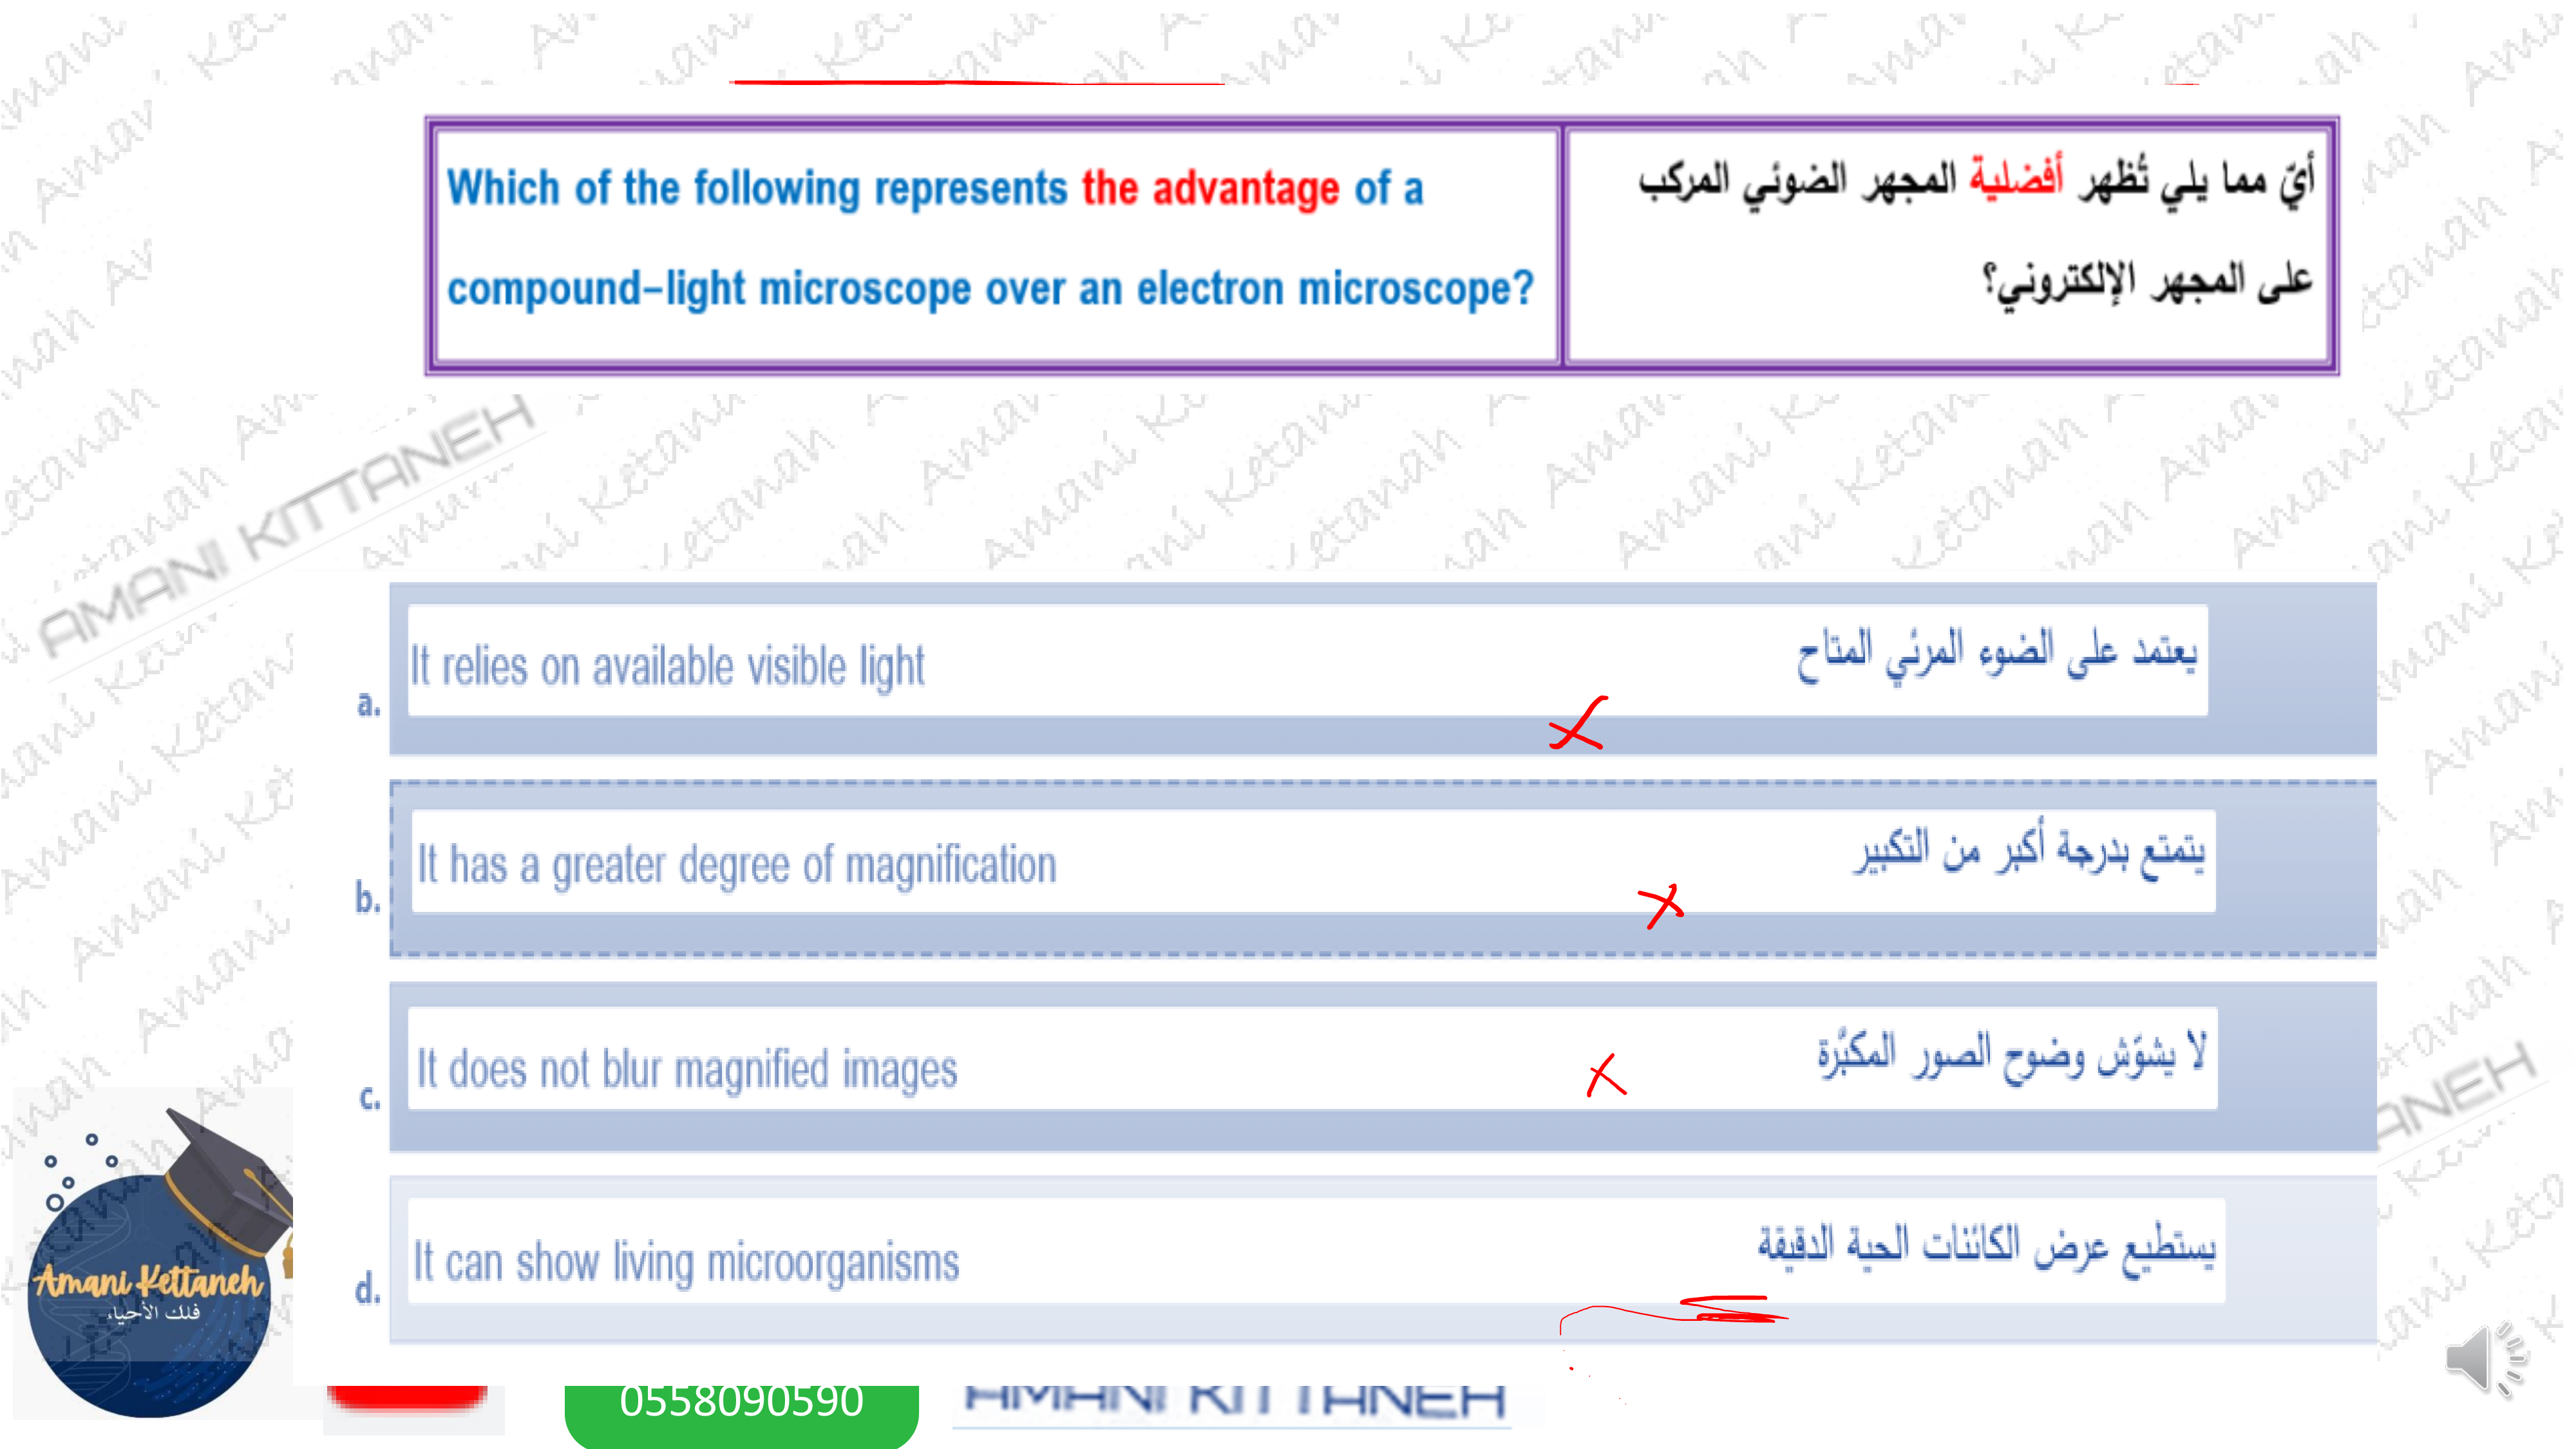 Which of the following represents the advantage of a
compound–light microscope over an electron microscope?
أيّ مما يلي تُظهر أفضلية المجهر الضوئي المركب
على المجهر الإلكتروني؟
AMANI KITTANEH
a. It relies on available visible light
يعتمد على الضوء المرئي المتاح
b. It has a greater degree of magnification
يتمتع بدرجة أكبر من التكبير
c. It does not blur magnified images
لا يشوّش وضوح الصور المكبَّرة
d. It can show living microorganisms
يستطيع عرض الكائنات الحية الدقيقة
Amani Kettaneh
فلك الأحياء
0558090590
AMANI KITTANEH